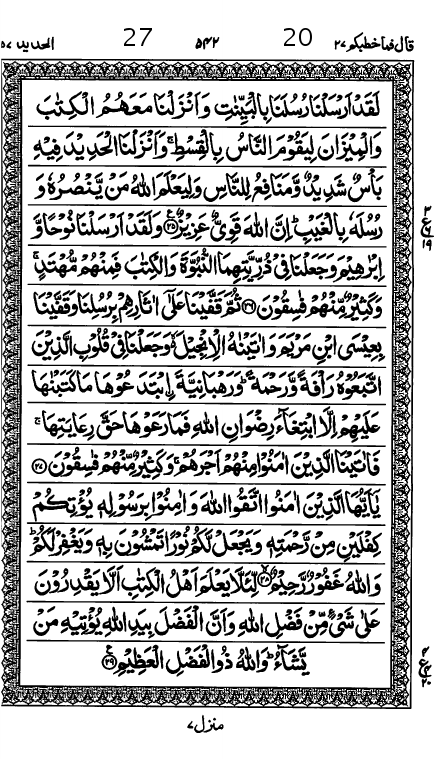 قال فما خطبكم ۲۷ 20 ۵۴۲ 27 الحديد ۵۷
لَقَدْ اَرْسَلْنَا رُسُلَنَا بِالْبَيِّنٰتِ وَاَنْزَلْنَا مَعَهُمُ الْكِتٰبَ
وَالْمِيْزَانَ لِيَقُوْمَ النَّاسُ بِالْقِسْطِ ۚ وَاَنْزَلْنَا الْحَدِيْدَ فِيْهِ
بَاْسٌ شَدِيْدٌ وَّمَنَافِعُ لِلنَّاسِ وَلِيَعْلَمَ اللّٰهُ مَنْ يَّنْصُرُهٗ وَ
رُسُلَهٗ بِالْغَيْبِ ؕ اِنَّ اللّٰهَ قَوِىٌّ عَزِيْزٌ ۟۠﴿۲۵﴾ وَلَقَدْ اَرْسَلْنَا نُوْحًا وَّ
اِبْرٰهِيْمَ وَجَعَلْنَا فِىْ ذُرِّيَّتِهِمَا النُّبُوَّةَ وَالْكِتٰبَ فَمِنْهُمْ مُّهْتَدٍ ۚ
وَكَثِيْرٌ مِّنْهُمْ فٰسِقُوْنَ ﴿۲۶﴾ ثُمَّ قَفَّيْنَا عَلٰٓى اٰثَارِهِمْ بِرُسُلِنَا وَقَفَّيْنَا
بِعِيْسَى ابْنِ مَرْيَمَ وَاٰتَيْنٰهُ الْاِنْجِيْلَ ۙ۬ وَجَعَلْنَا فِىْ قُلُوْبِ الَّذِيْنَ
اتَّبَعُوْهُ رَاْفَةً وَّرَحْمَةً ؕ وَرَهْبَانِيَّةَ ِۨابْتَدَعُوْهَا مَا كَتَبْنٰهَا
عَلَيْهِمْ اِلَّا ابْتِغَآءَ رِضْوَانِ اللّٰهِ فَمَا رَعَوْهَا حَقَّ رِعَايَتِهَا ۚ
فَاٰتَيْنَا الَّذِيْنَ اٰمَنُوْا مِنْهُمْ اَجْرَهُمْ ۚ وَكَثِيْرٌ مِّنْهُمْ فٰسِقُوْنَ ﴿۲۷﴾
يٰۤاَيُّهَا الَّذِيْنَ اٰمَنُوا اتَّقُوا اللّٰهَ وَاٰمِنُوْا بِرَسُوْلِهٖ يُؤْتِكُمْ
كِفْلَيْنِ مِنْ رَّحْمَتِهٖ وَيَجْعَلْ لَّكُمْ نُوْرًا تَمْشُوْنَ بِهٖ وَيَغْفِرْ لَكُمْ ؕ
وَاللّٰهُ غَفُوْرٌ رَّحِيْمٌ ۚۙ﴿۲۸﴾ لِّئَلَّا يَعْلَمَ اَهْلُ الْكِتٰبِ اَلَّا يَقْدِرُوْنَ
عَلٰى شَىْءٍ مِّنْ فَضْلِ اللّٰهِ وَاَنَّ الْفَضْلَ بِيَدِ اللّٰهِ يُؤْتِيْهِ مَنْ
يَّشَآءُ ؕ وَاللّٰهُ ذُو الْفَضْلِ الْعَظِيْمِ ﴿۲۹﴾
منزل ۷